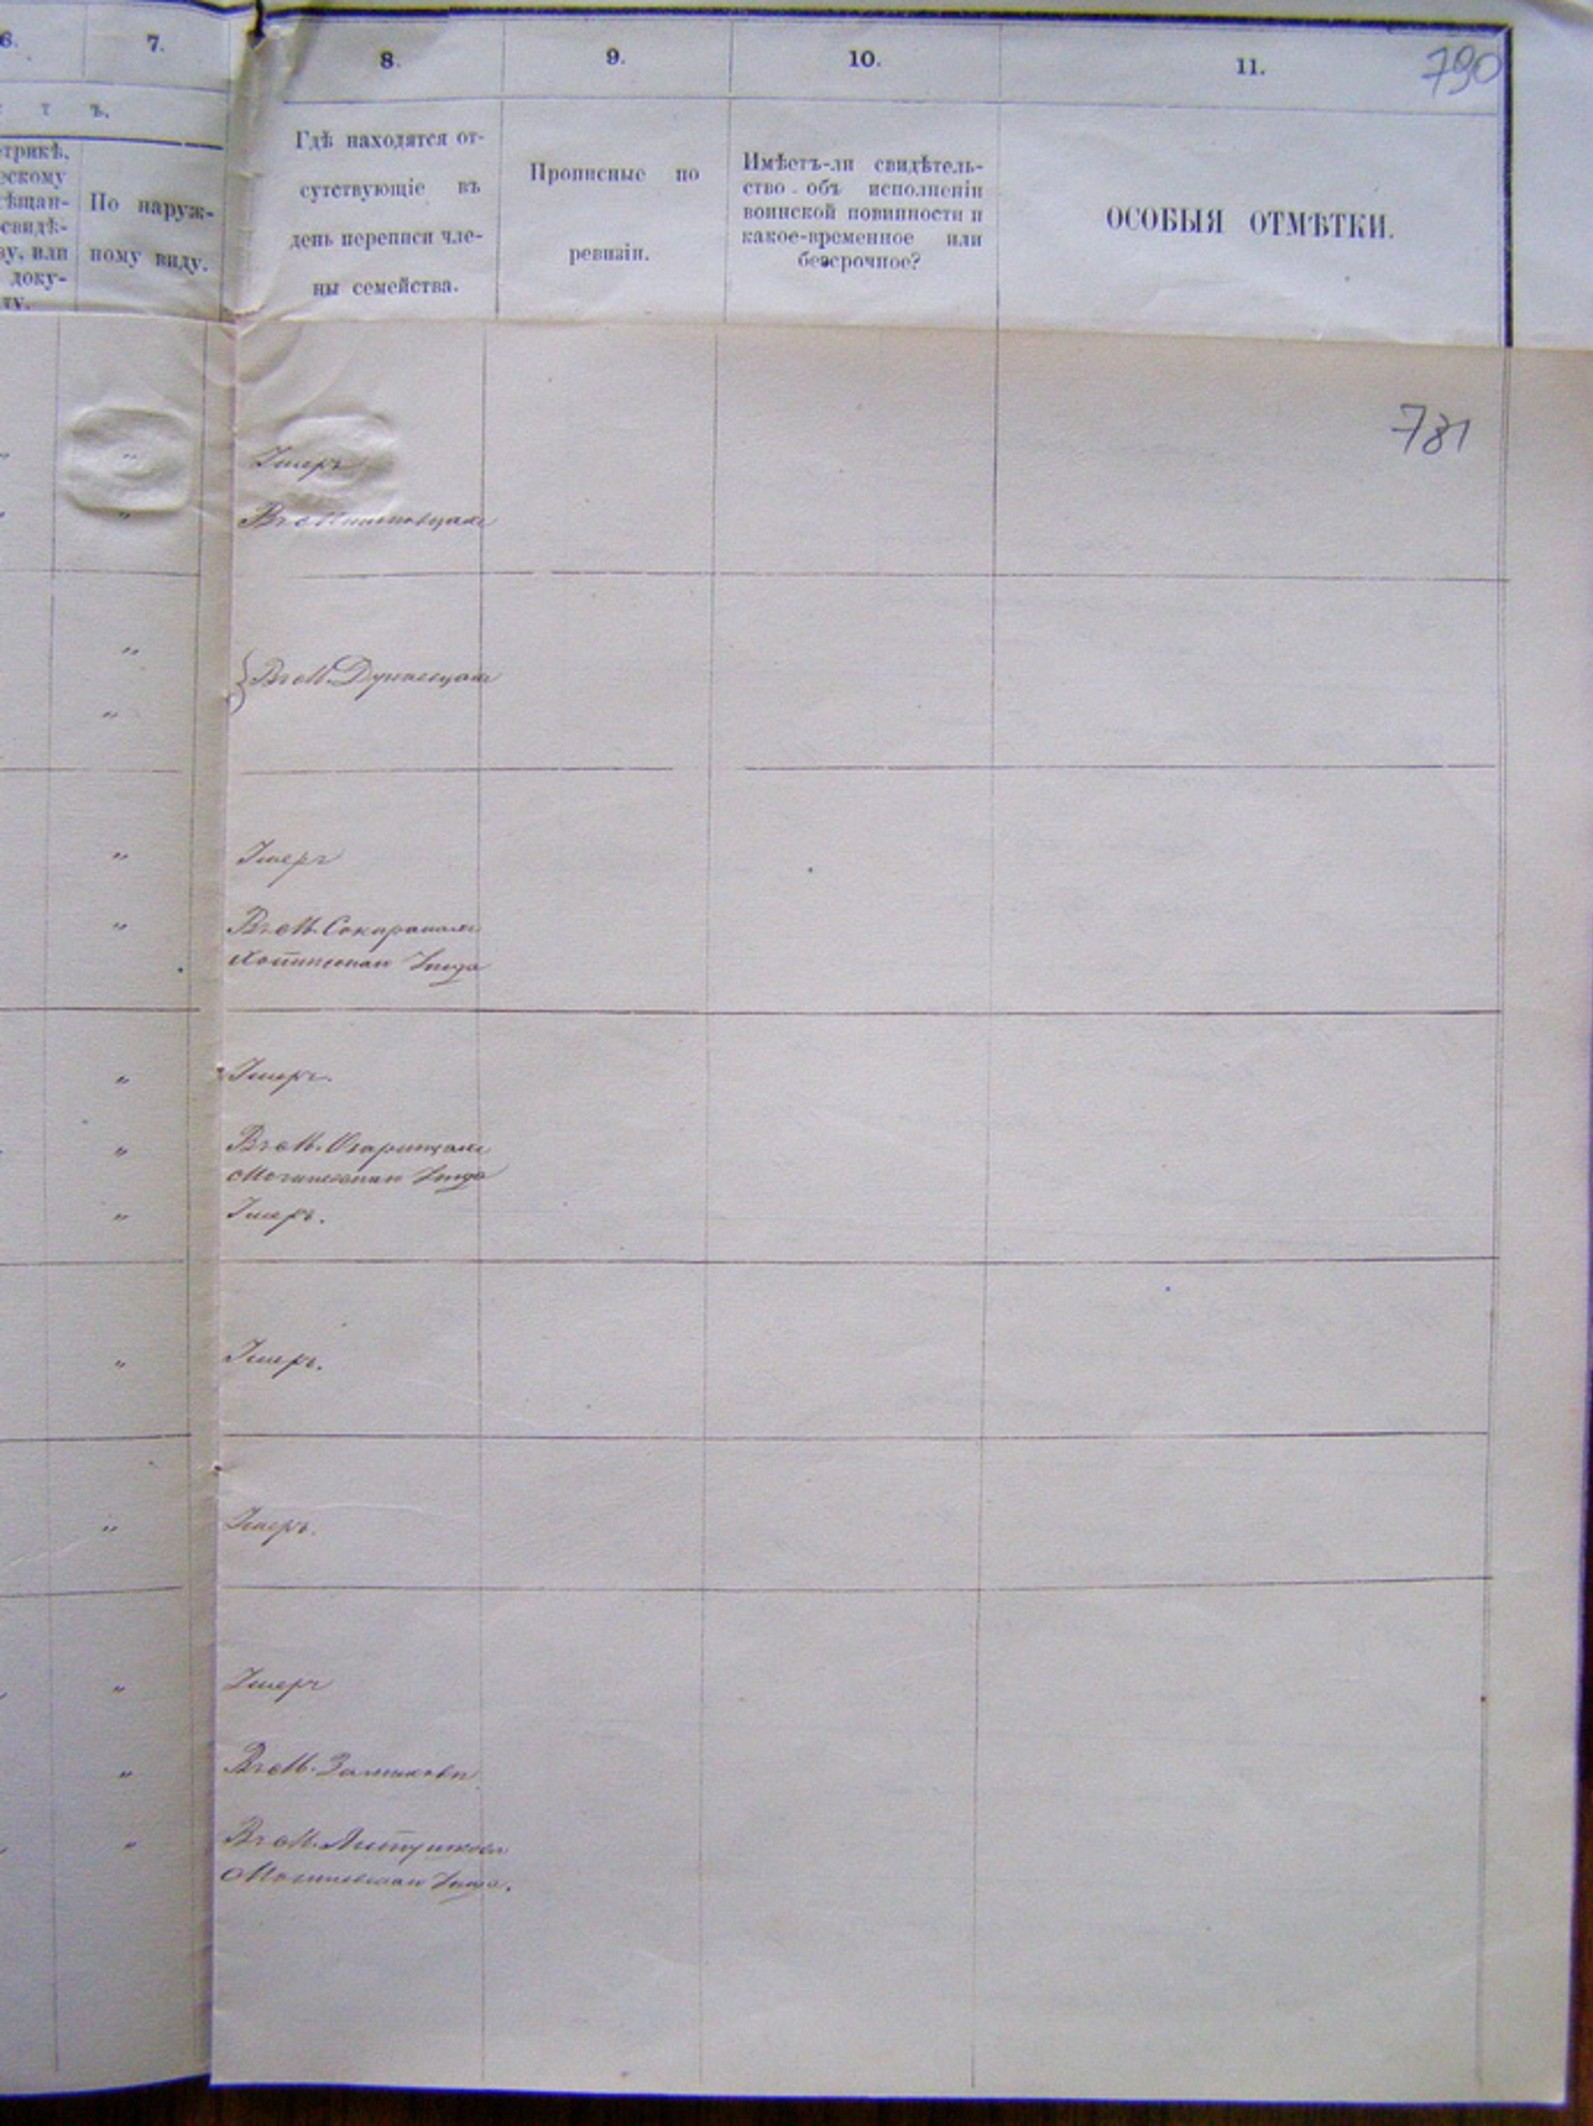 6.
7.
8.
9.
10.
11.
790
т ъ.
Гдѣ находятся от-
сутствующіе въ
день переписи чле-
ны семейства.
Прописные по
ревизіи.
Имѣетъ-ли свидѣтель-
ство объ исполненіи
воинской повинности и
какое-временное или
безсрочное?
ОСОБЫЯ ОТМѢТКИ.
етрикѣ,
ескому
ѣщан-
свидѣ-
ву, или
доку-
ту.
По наруж-
ному виду.
781
Умеръ
Въ м.
Въ м. Дунаевцахъ
Умеръ
Въ м. Сокирянахъ
Хотинскаго Уѣзда
Умеръ.
Въ м. Озаринцахъ
Могилевскаго Уѣзда
Умеръ.
Умеръ.
Умеръ.
Умеръ
Въ м.
Въ м.
Могилевскаго Уѣзда.